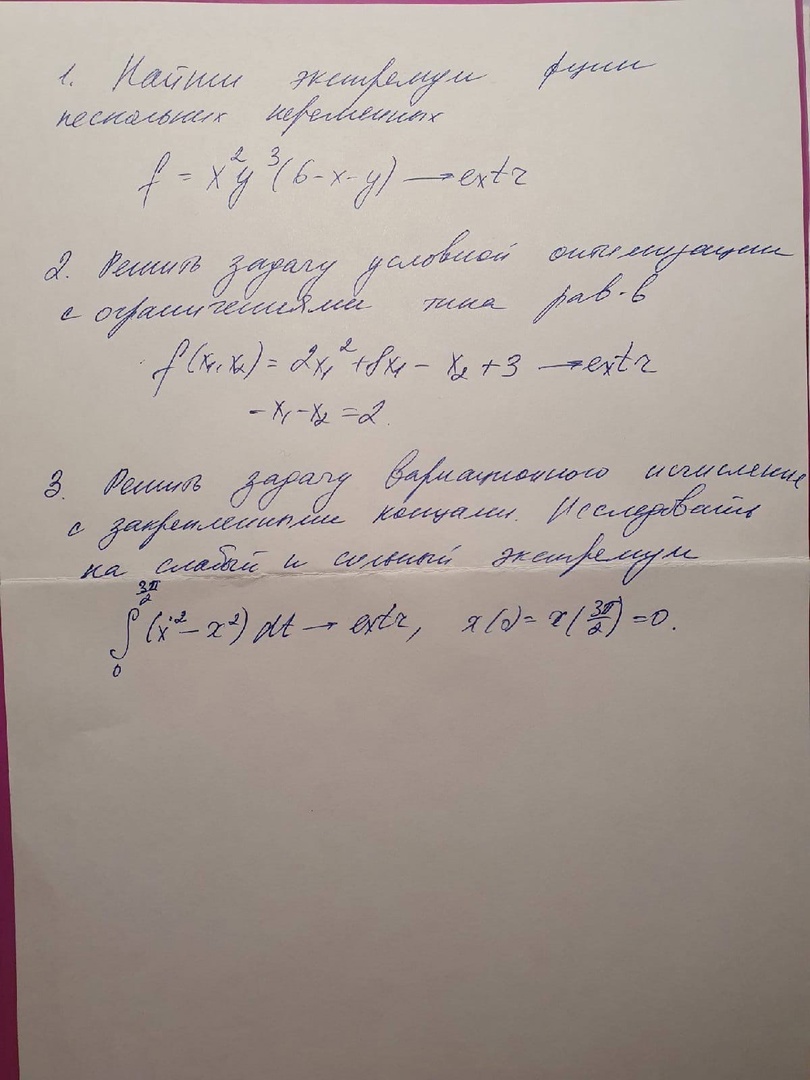 1. Найти экстремум фции
нескольких переменных
f = x²y³(6-x-y) → extr
2. Решить задачу условной оптимизации
с ограничениями типа рав-в
f(x₁,x₂) = 2x₁² + 8x₁ - x₂ + 3 → extr
-x₁-x₂ = 2.
3. Решить задачу вариационного исчисление
с закрепленными концами. Исследовать
на слабый и сильный экстремум
∫₀^(3π/2) (ẋ² - x²) dt → extr, x(0) = x(3π/2) = 0.